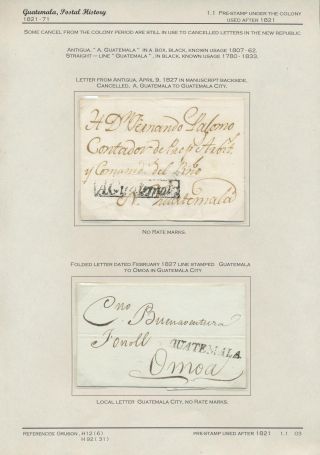 Guatemala, Postal History
1821-71
1.1 Pre-stamp under the colony
used after 1821
Some cancel from the colony period are still in use to cancelled letters in the new republic
Antigua, "A. Guatemala" in a box, black, known usage 1807-62.
Straight - line "Guatemala", in black, known usage 1780-1833.
Letter from Antigua, April 9, 1827 in manuscript backside.
Cancelled, A. Guatemala to Guatemala City.
A D.n Fernando Palomo
Contador de
y del
A Guatemal
Guatemala
No Rate marks.
Folded letter dated February 1827 line stamped Guatemala
to Omoa in Guatemala City.
Cno Buenaventura
Fonoll
GUATEMALA
Omoa
Local letter Guatemala City, no Rate marks.
References: Grubon, H12 (6)
H 92 (31)
Pre-stamp used after 1821 1.1 03